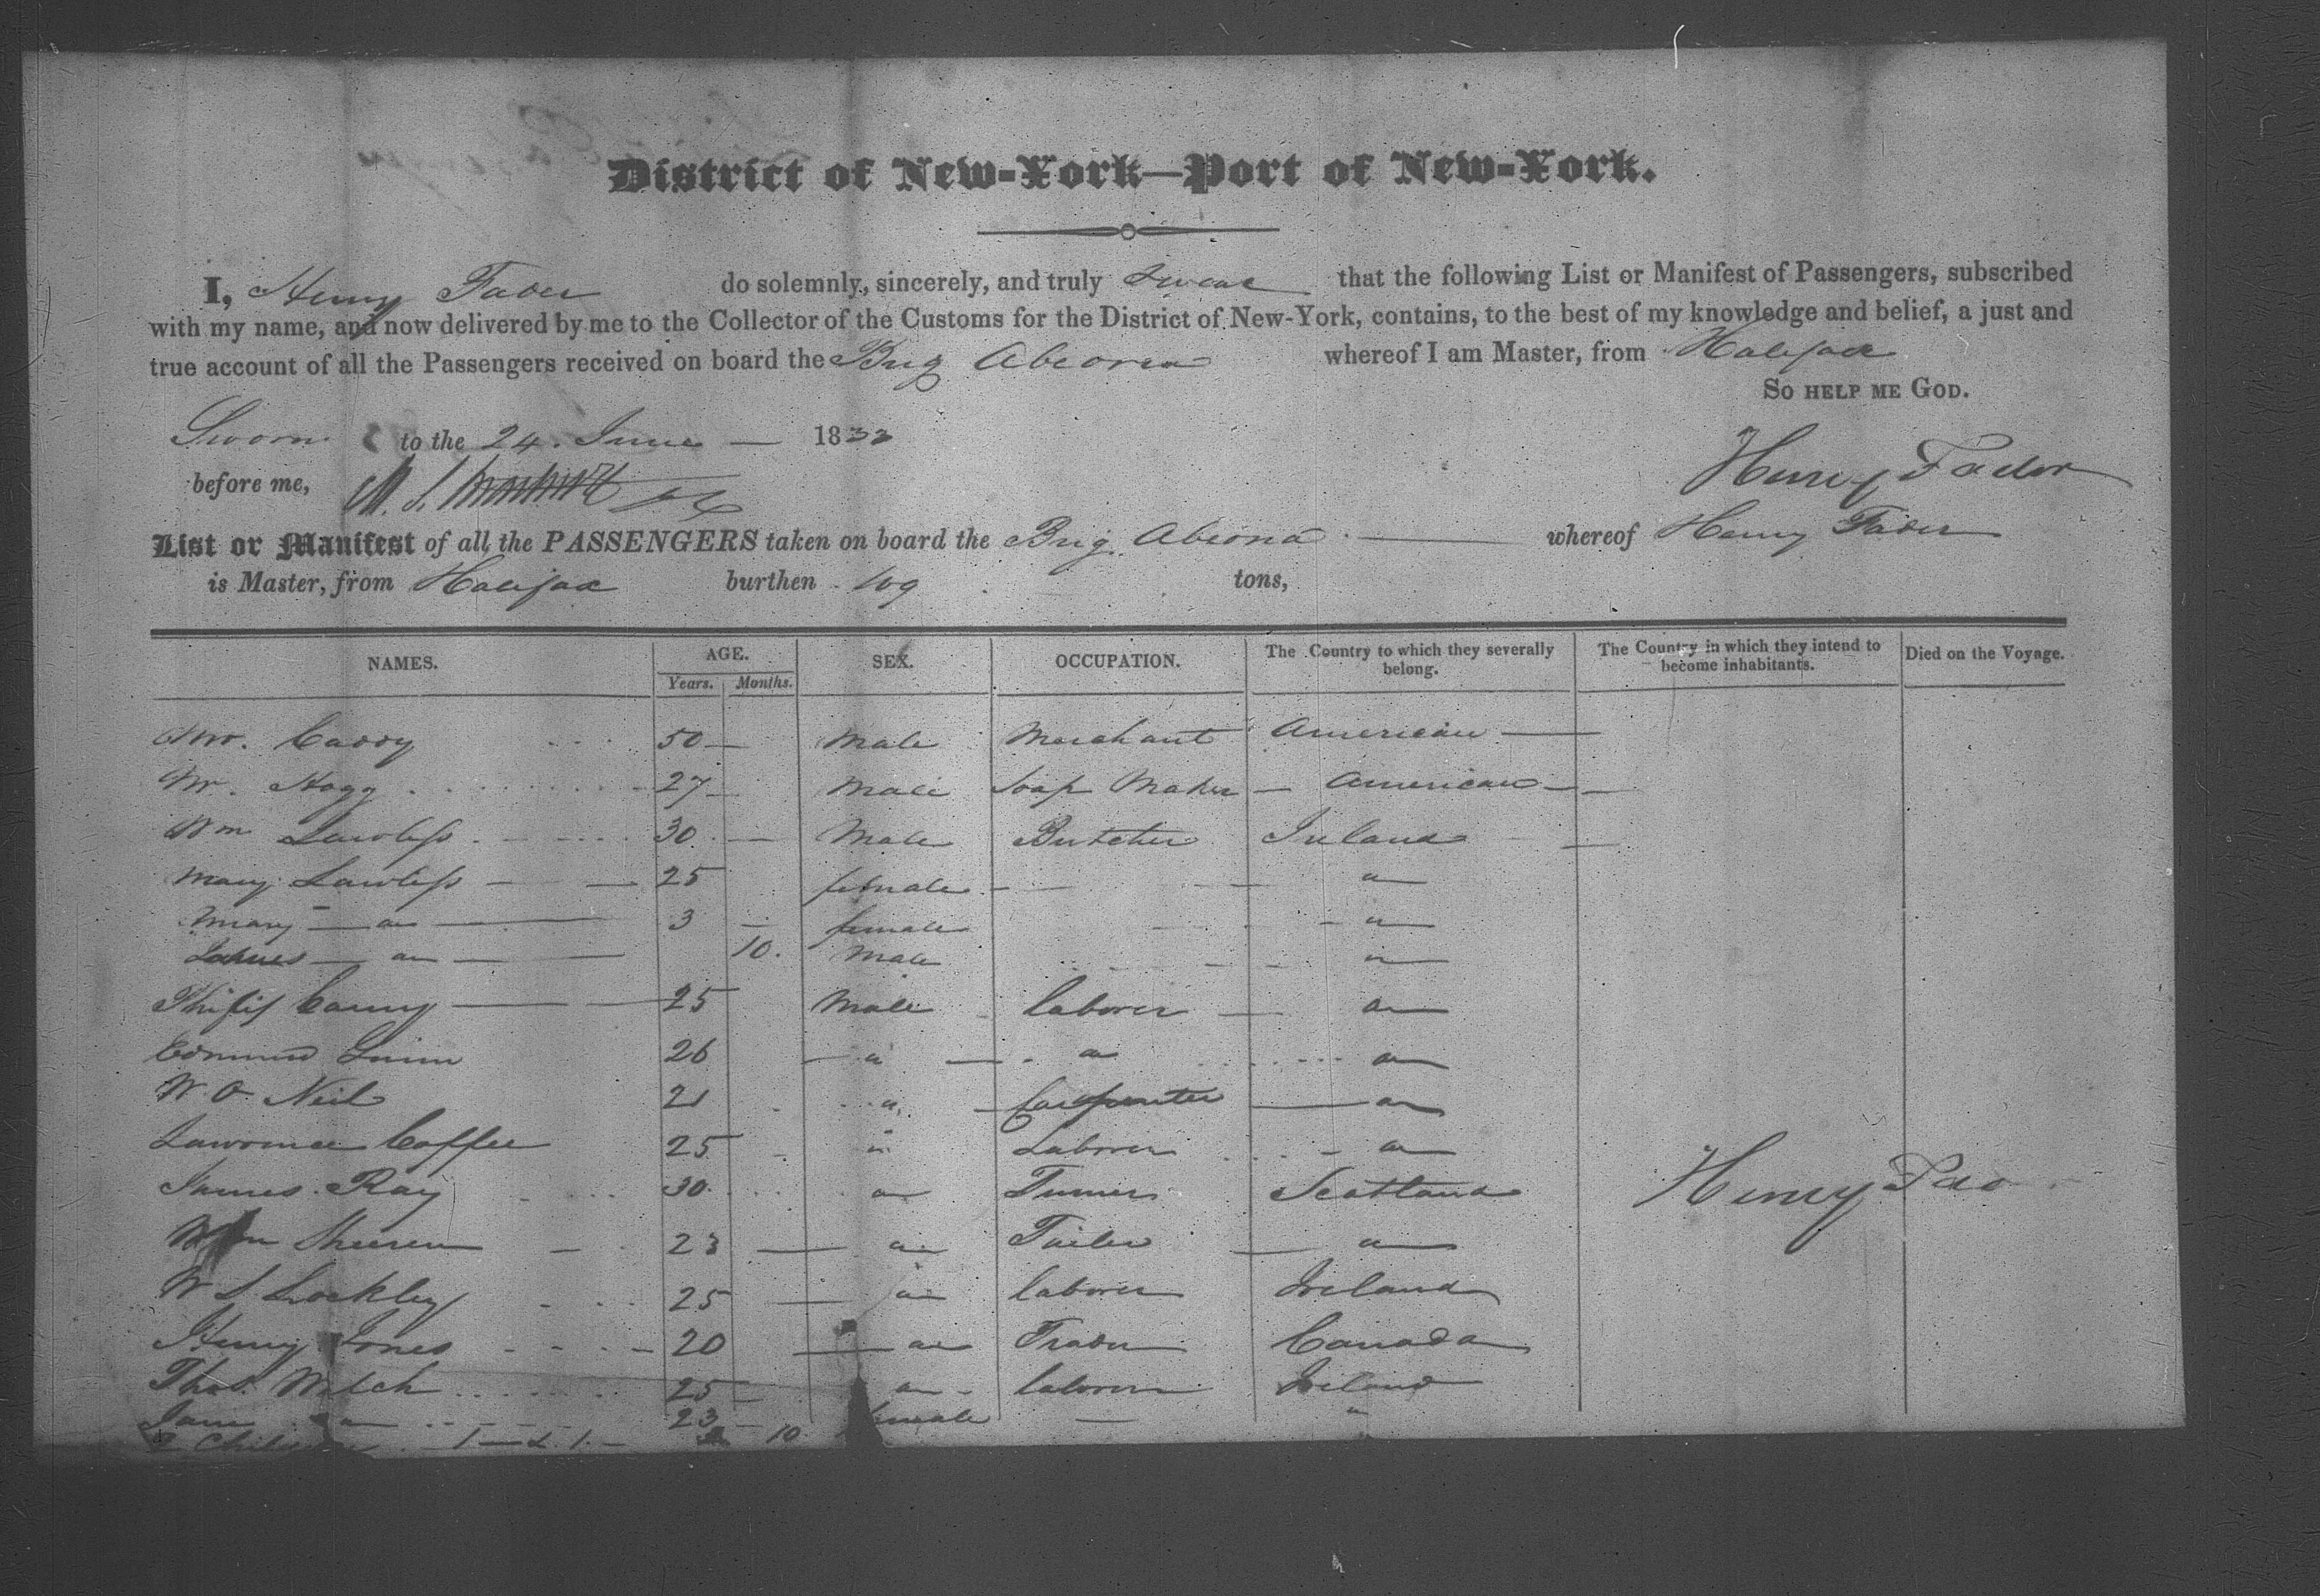 District of New-York—Port of New-York.
I, Henry Fader do solemnly, sincerely, and truly Swear that the following List or Manifest of Passengers, subscribed
with my name, and now delivered by me to the Collector of the Customs for the District of New-York, contains, to the best of my knowledge and belief, a just and
true account of all the Passengers received on board the Brig Abeona whereof I am Master, from Halifax
So help me God.
Sworn to the 24. June — 1833
before me,
Henry Fader
List or Manifest of all the PASSENGERS taken on board the Brig Abeona whereof Henry Fader
is Master, from Halifax burthen 109 tons,
NAMES. AGE. SEX. OCCUPATION. The Country to which they severally belong. The Country in which they intend to become inhabitants. Died on the Voyage.
Years. Months.
Mr. Caddy 50 Male Merchant American
Mr. Hogg 27 Male Soap Maker American
Wm Lawless 30 Male Butcher Ireland
Mary Lawless 25 female "
Mary " 3 female "
James " 10. Male "
Philip Canny 25 Male laborer "
Edmund Quinn 26 " " "
W O Neil 21 " Carpenter "
Lawrence Coffee 25 " Laborer "
James Ray 30 " Turner Scotland
Henry Fader
Wm Sheeren 23 " Tailor "
W S Lockley 25 " laborer Ireland
Henry Jones 20 " Trader Canada
Thos. Welch 25 " laborer Ireland
Jane " 23 female "
Children 10